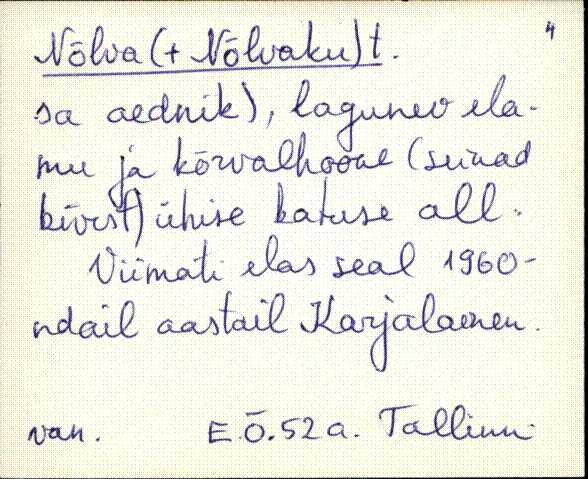 4
Nõlva (+ Nõlvaku) t.
sa aednik), lagunev ela-
mu ja kõrvalhoone (seinad
kivist) ühise katuse all.
Viimati elas seal 1960-
ndail aastail Karjalainen.
van. E.Õ. 52 a. Tallinn